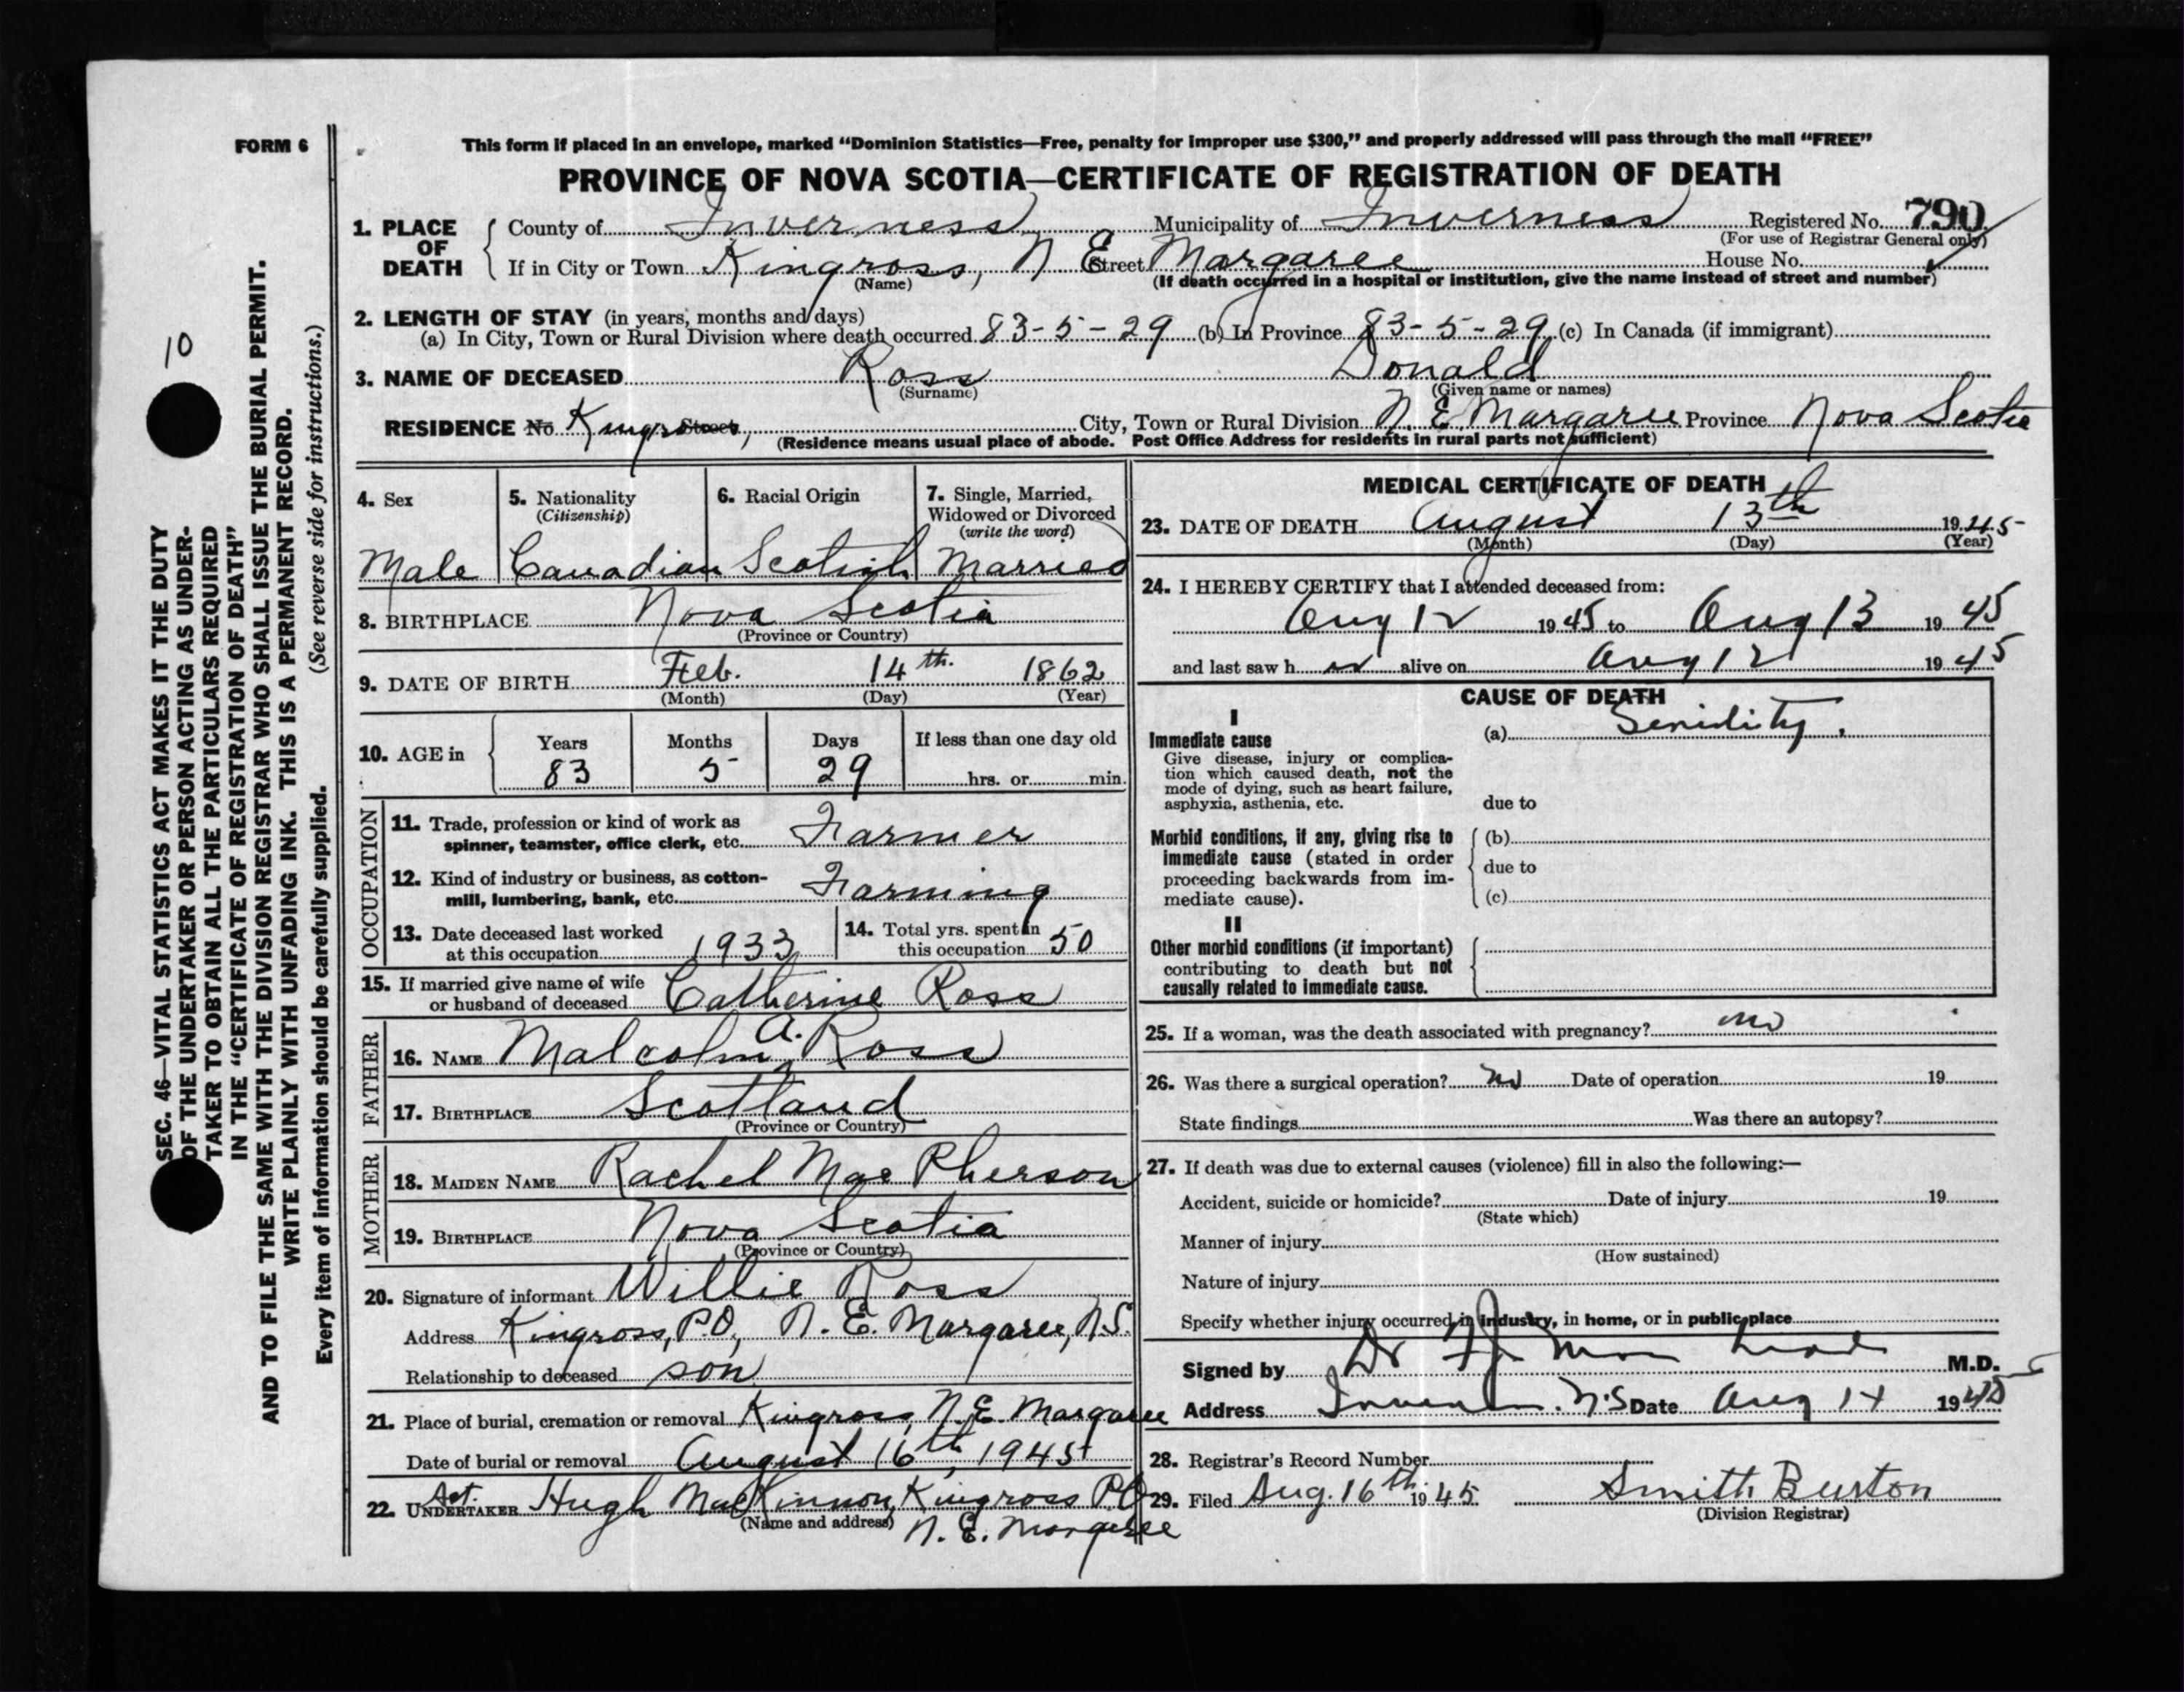 FORM 6
This form if placed in an envelope, marked “Dominion Statistics—Free, penalty for improper use $300,” and properly addressed will pass through the mail “FREE”
PROVINCE OF NOVA SCOTIA—CERTIFICATE OF REGISTRATION OF DEATH
1. PLACE OF DEATH
County of Inverness Municipality of Inverness Registered No. 790
(For use of Registrar General only)
If in City or Town Kingross, N E Street Margaree House No.
(Name) (If death occurred in a hospital or institution, give the name instead of street and number)
2. LENGTH OF STAY (in years, months and days)
(a) In City, Town or Rural Division where death occurred 83-5-29 (b) In Province 83-5-29 (c) In Canada (if immigrant)
3. NAME OF DECEASED Ross Donald
(Surname) (Given name or names)
RESIDENCE No Kingross, Street City, Town or Rural Division N. E. Margaree Province Nova Scotia
(Residence means usual place of abode. Post Office Address for residents in rural parts not sufficient)
4. Sex
Male
5. Nationality
(Citizenship)
Canadian
6. Racial Origin
Scotish
7. Single, Married,
Widowed or Divorced
(write the word)
Married
8. BIRTHPLACE Nova Scotia
(Province or Country)
9. DATE OF BIRTH Feb. 14th. 1862
(Month) (Day) (Year)
10. AGE in
Years Months Days If less than one day old
83 5 29 hrs. or min.
OCCUPATION
11. Trade, profession or kind of work as
spinner, teamster, office clerk, etc. Farmer
12. Kind of industry or business, as cotton-
mill, lumbering, bank, etc. Farming
13. Date deceased last worked
at this occupation 1933
14. Total yrs. spent in
this occupation 50
15. If married give name of wife
or husband of deceased Catherine Ross
FATHER
16. NAME Malcolm A. Ross
17. BIRTHPLACE Scotland
(Province or Country)
MOTHER
18. MAIDEN NAME Rachel MacPherson
19. BIRTHPLACE Nova Scotia
(Province or Country)
20. Signature of informant Willie Ross
Address Kingross, P.O, N. E. Margaree, N.S.
Relationship to deceased son
21. Place of burial, cremation or removal Kingross, N.E. Margaree
Date of burial or removal August 16th, 1945
22. Act. UNDERTAKER Hugh MacKinnon, Kingross P.O
(Name and address) N. E. Margaree
MEDICAL CERTIFICATE OF DEATH
23. DATE OF DEATH August 13th 1945
(Month) (Day) (Year)
24. I HEREBY CERTIFY that I attended deceased from:
Aug 12 1945 to Aug 13 1945
and last saw h alive on Aug 12 1945
CAUSE OF DEATH
I
Immediate cause
Give disease, injury or complica-
tion which caused death, not the
mode of dying, such as heart failure,
asphyxia, asthenia, etc.
(a) Senility.
due to
Morbid conditions, if any, giving rise to
immediate cause (stated in order
proceeding backwards from im-
mediate cause).
(b)
due to
(c)
II
Other morbid conditions (if important)
contributing to death but not
causally related to immediate cause.
25. If a woman, was the death associated with pregnancy? no
26. Was there a surgical operation? no Date of operation 19
State findings Was there an autopsy?
27. If death was due to external causes (violence) fill in also the following:—
Accident, suicide or homicide? Date of injury 19
(State which)
Manner of injury
(How sustained)
Nature of injury
Specify whether injury occurred in industry, in home, or in public place
Signed by Dr M.D.
Address N.S Date Aug 14 1945
28. Registrar's Record Number
29. Filed Aug. 16th 1945 Smith Burton
(Division Registrar)
10
SEC. 46—VITAL STATISTICS ACT MAKES IT THE DUTY
OF THE UNDERTAKER OR PERSON ACTING AS UNDER-
TAKER TO OBTAIN ALL THE PARTICULARS REQUIRED
IN THE “CERTIFICATE OF REGISTRATION OF DEATH”
AND TO FILE THE SAME WITH THE DIVISION REGISTRAR WHO SHALL ISSUE THE BURIAL PERMIT.
WRITE PLAINLY WITH UNFADING INK. THIS IS A PERMANENT RECORD.
Every item of information should be carefully supplied. (See reverse side for instructions.)